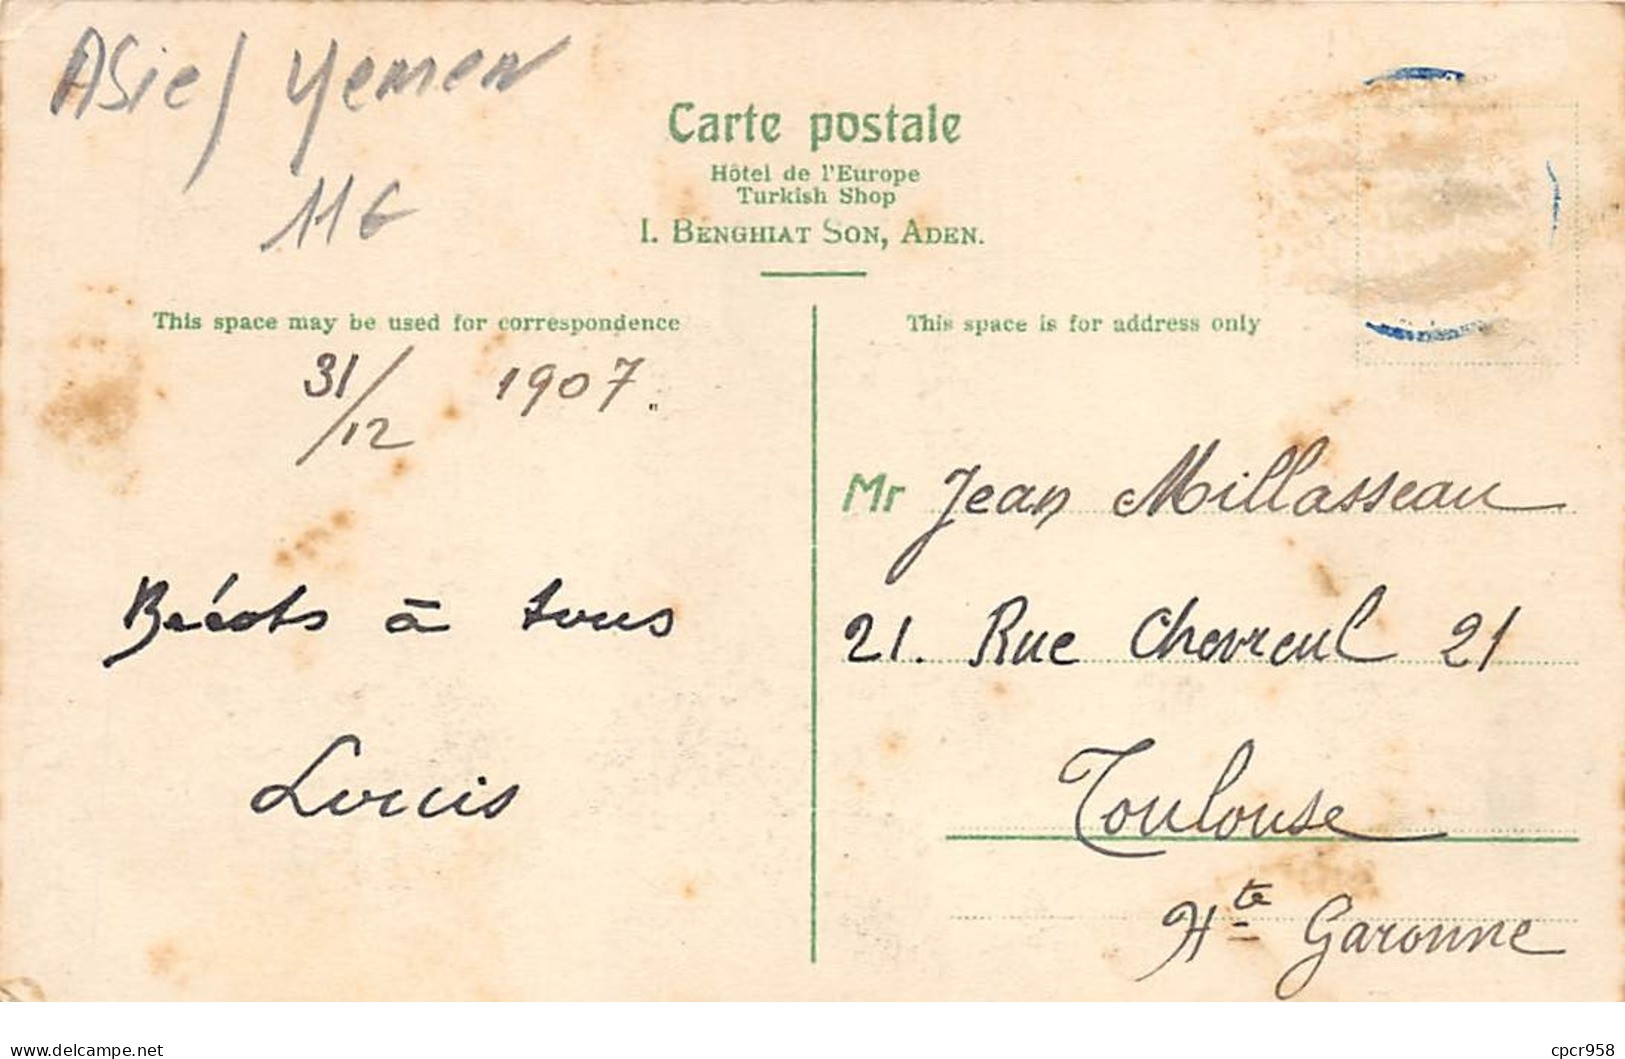 Asie / Yemen
116
Carte postale
Hôtel de l'Europe
Turkish Shop
I. BENGHIAT SON, ADEN.
This space may be used for correspondence
31/12 1907.
à tous
Louis
This space is for address only
Mr Jean Millasseau
21. Rue Chevreul 21
Toulouse
Hte Garonne
delcampe.net
cpcr958